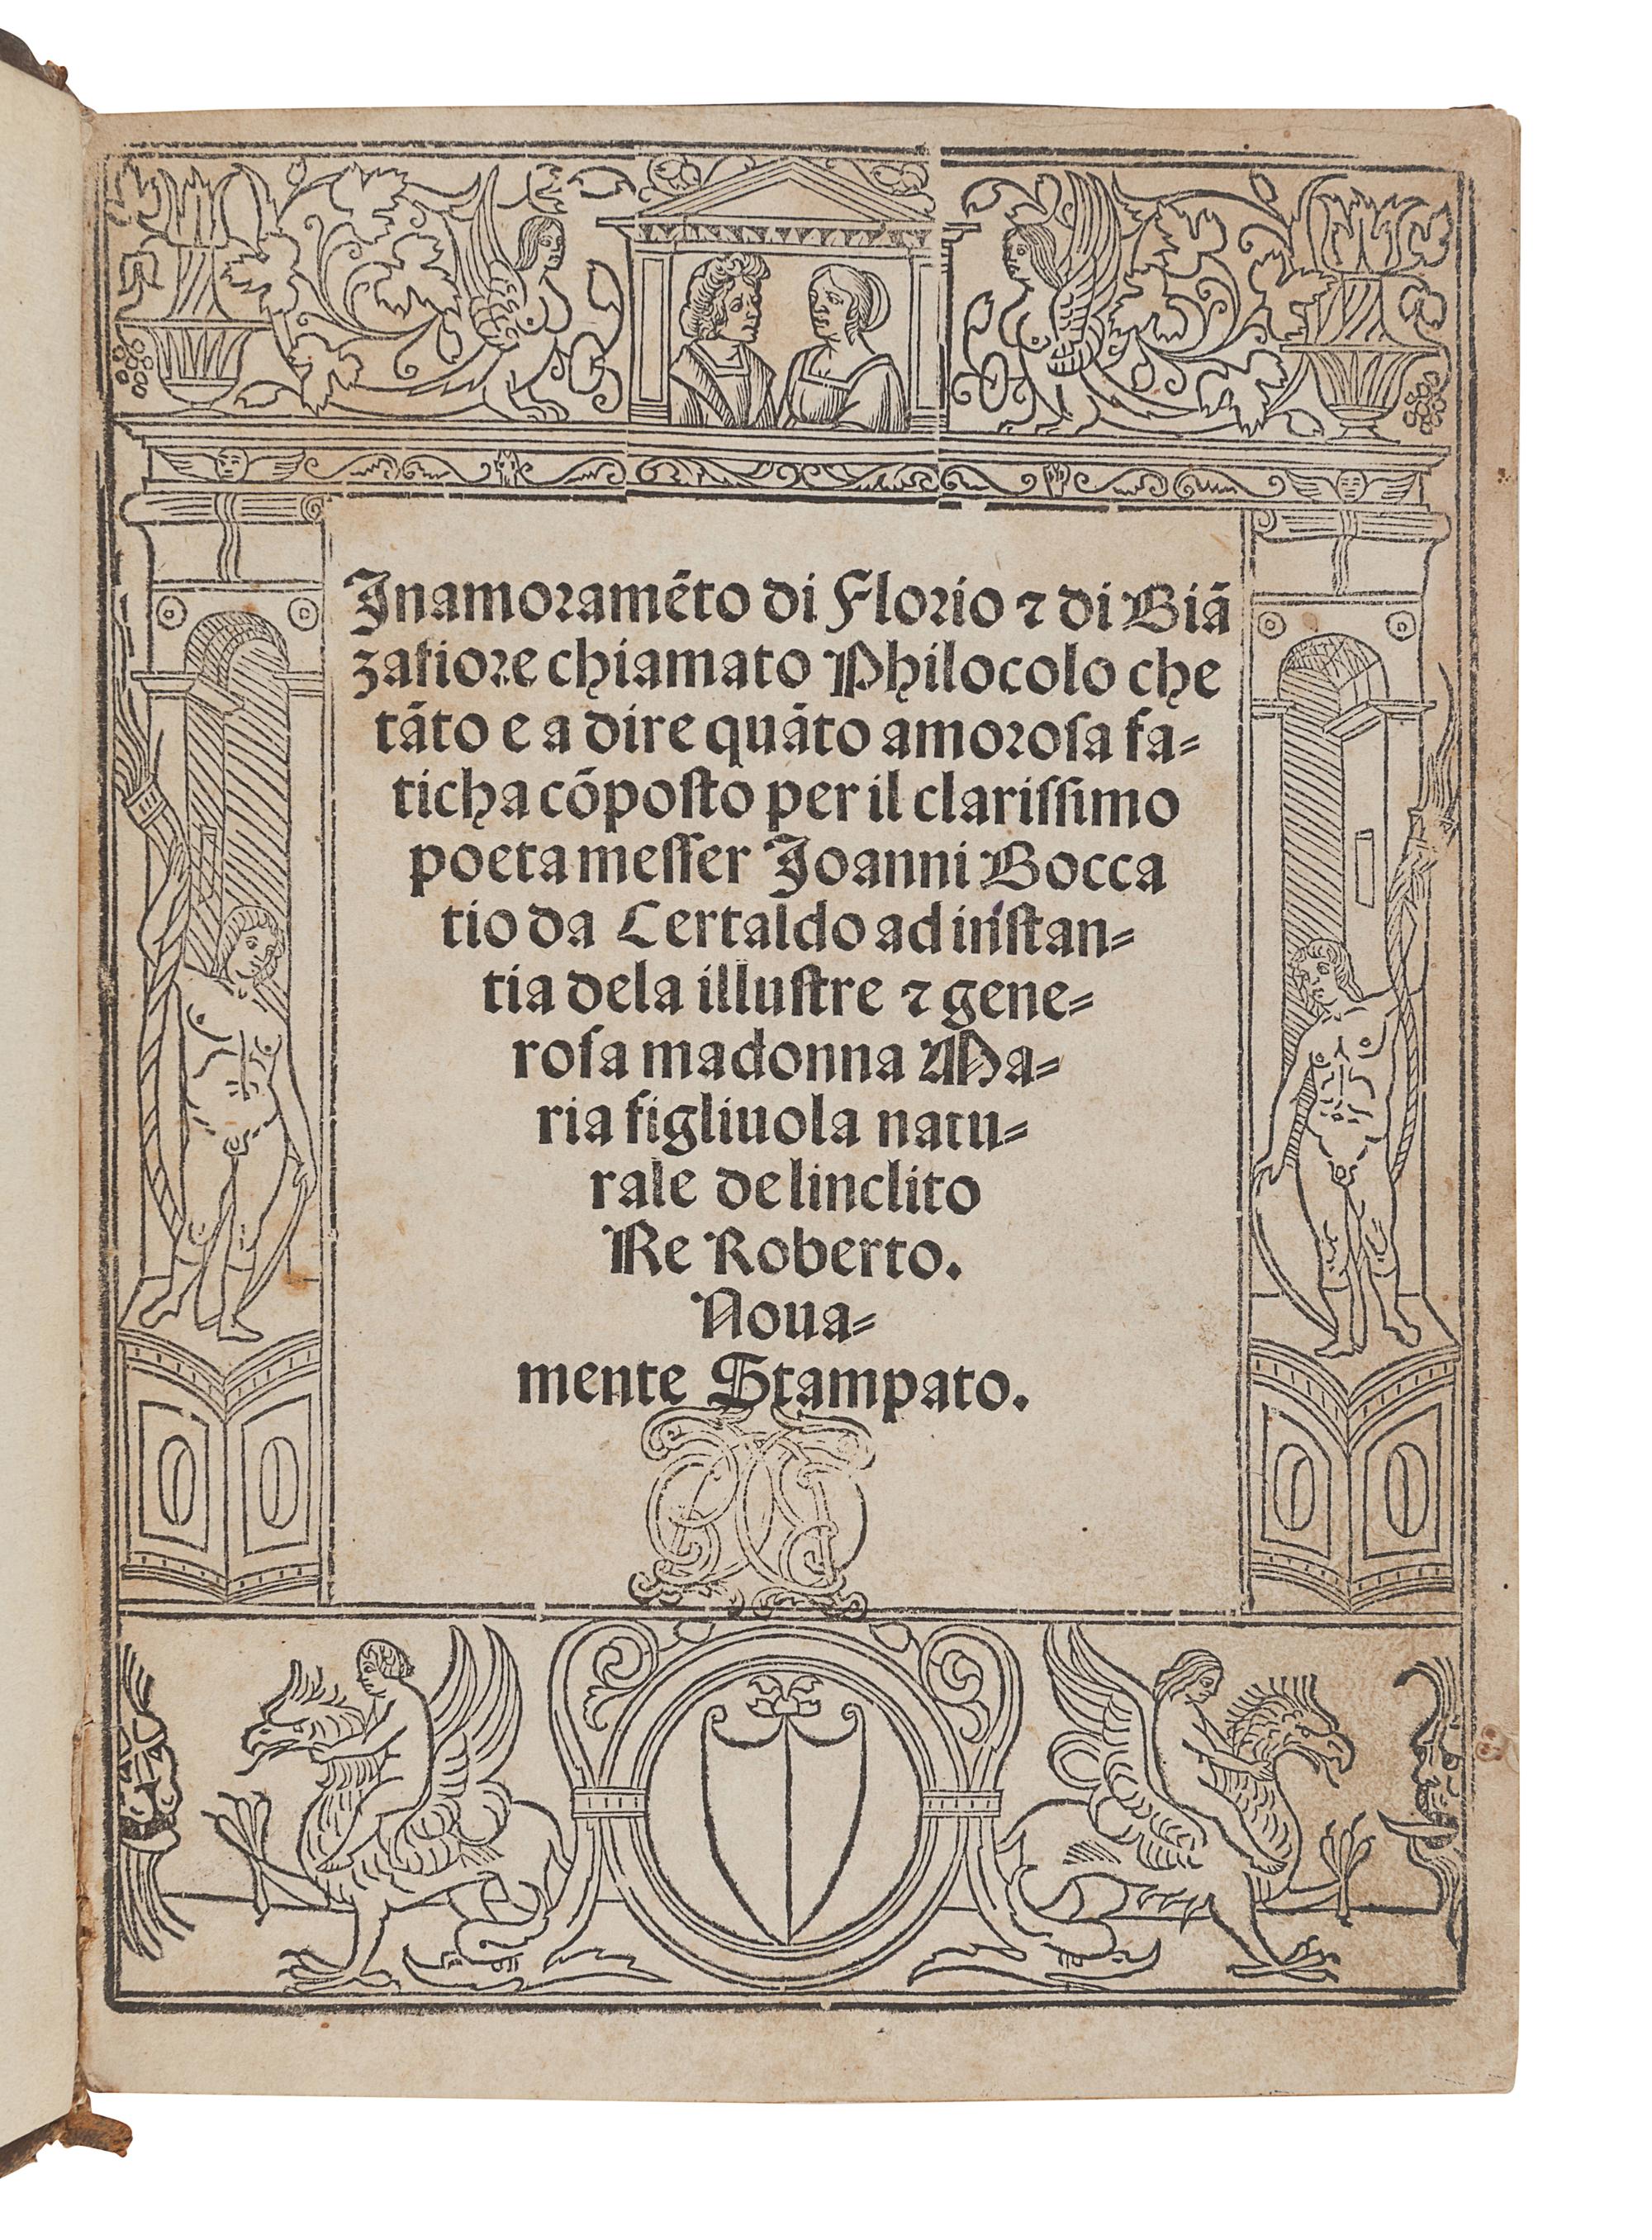 Inamoramēto di Florio ⁊ di Biā
zafiore chiamato Philocolo che
tāto e a dire quāto amorosa fa⸗
ticha cōposto per il clarissimo
poeta messer Joanni Bocca
tio da Certaldo ad instan⸗
tia dela illustre ⁊ gene⸗
rosa madonna Ma⸗
ria figliuola natu⸗
rale delinclito
Re Roberto.
Noua⸗
mente Stampato.